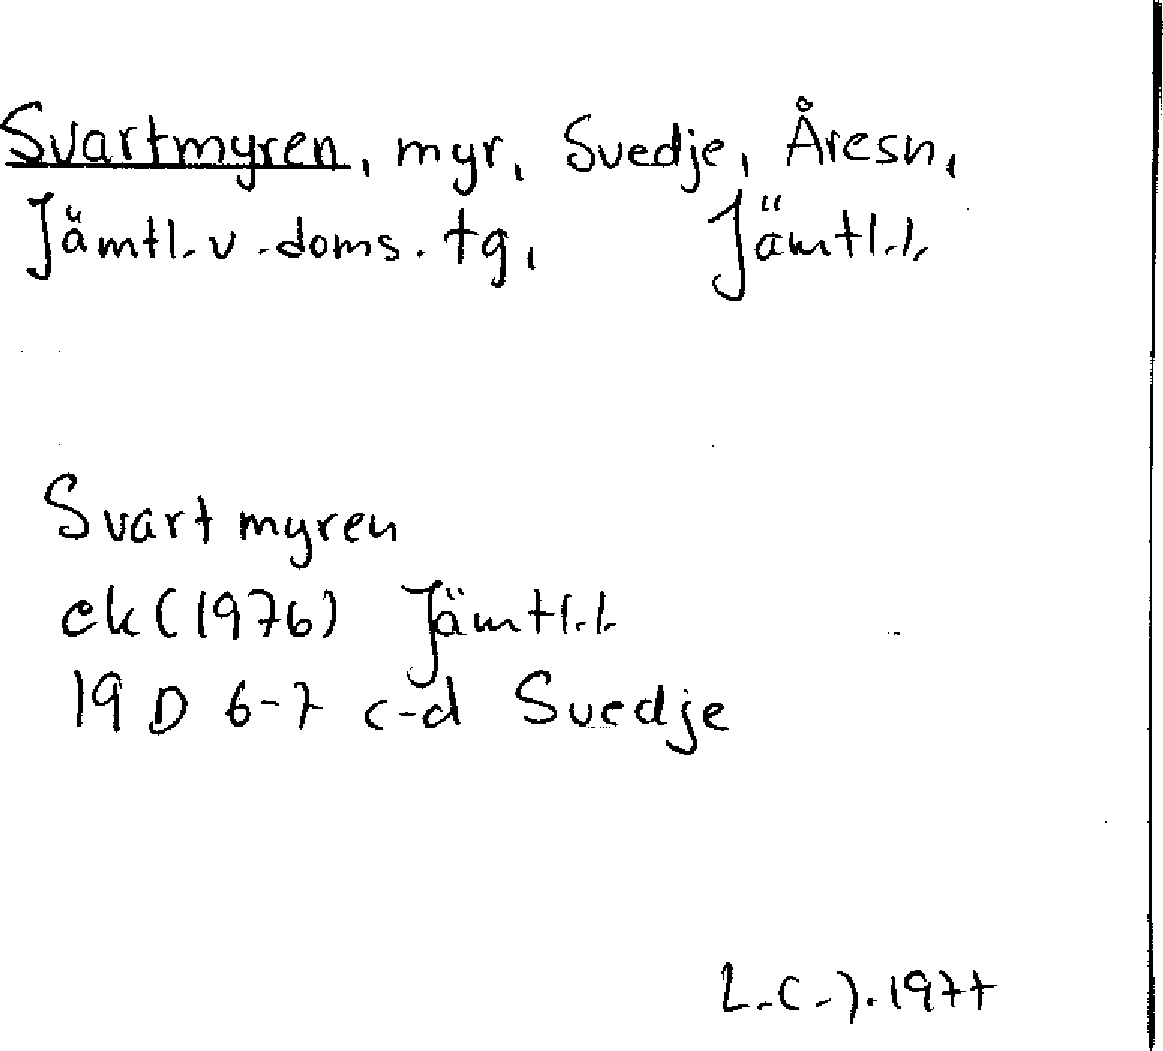 Svartmyren, myr, Svedje, Åresn,
Jämtl. v. doms. tg, Jämtl.l.
Svartmyren
ek (1976) Jämtl.l.
19 D 6-7 c-d Svedje
1977